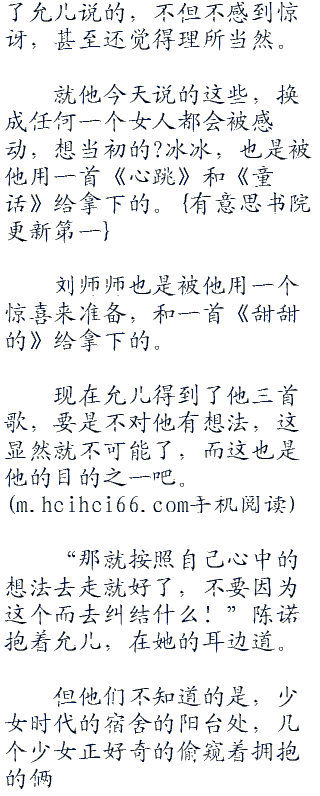 了允儿说的，不但不感到惊
讶，甚至还觉得理所当然。
就他今天说的这些，换
成任何一个女人都会被感
动，想当初的?冰冰，也是被
他用一首《心跳》和《童
话》给拿下的。{有意思书院
更新第一}
刘师师也是被他用一个
惊喜来准备，和一首《甜甜
的》给拿下的。
现在允儿得到了他三首
歌，要是不对他有想法，这
显然就不可能了，而这也是
他的目的之一吧。
(m.hcihci66.com手机阅读)
“那就按照自己心中的
想法去走就好了，不要因为
这个而去纠结什么！”陈诺
抱着允儿，在她的耳边道。
但他们不知道的是，少
女时代的宿舍的阳台处，几
个少女正好奇的偷窥着拥抱
的俩